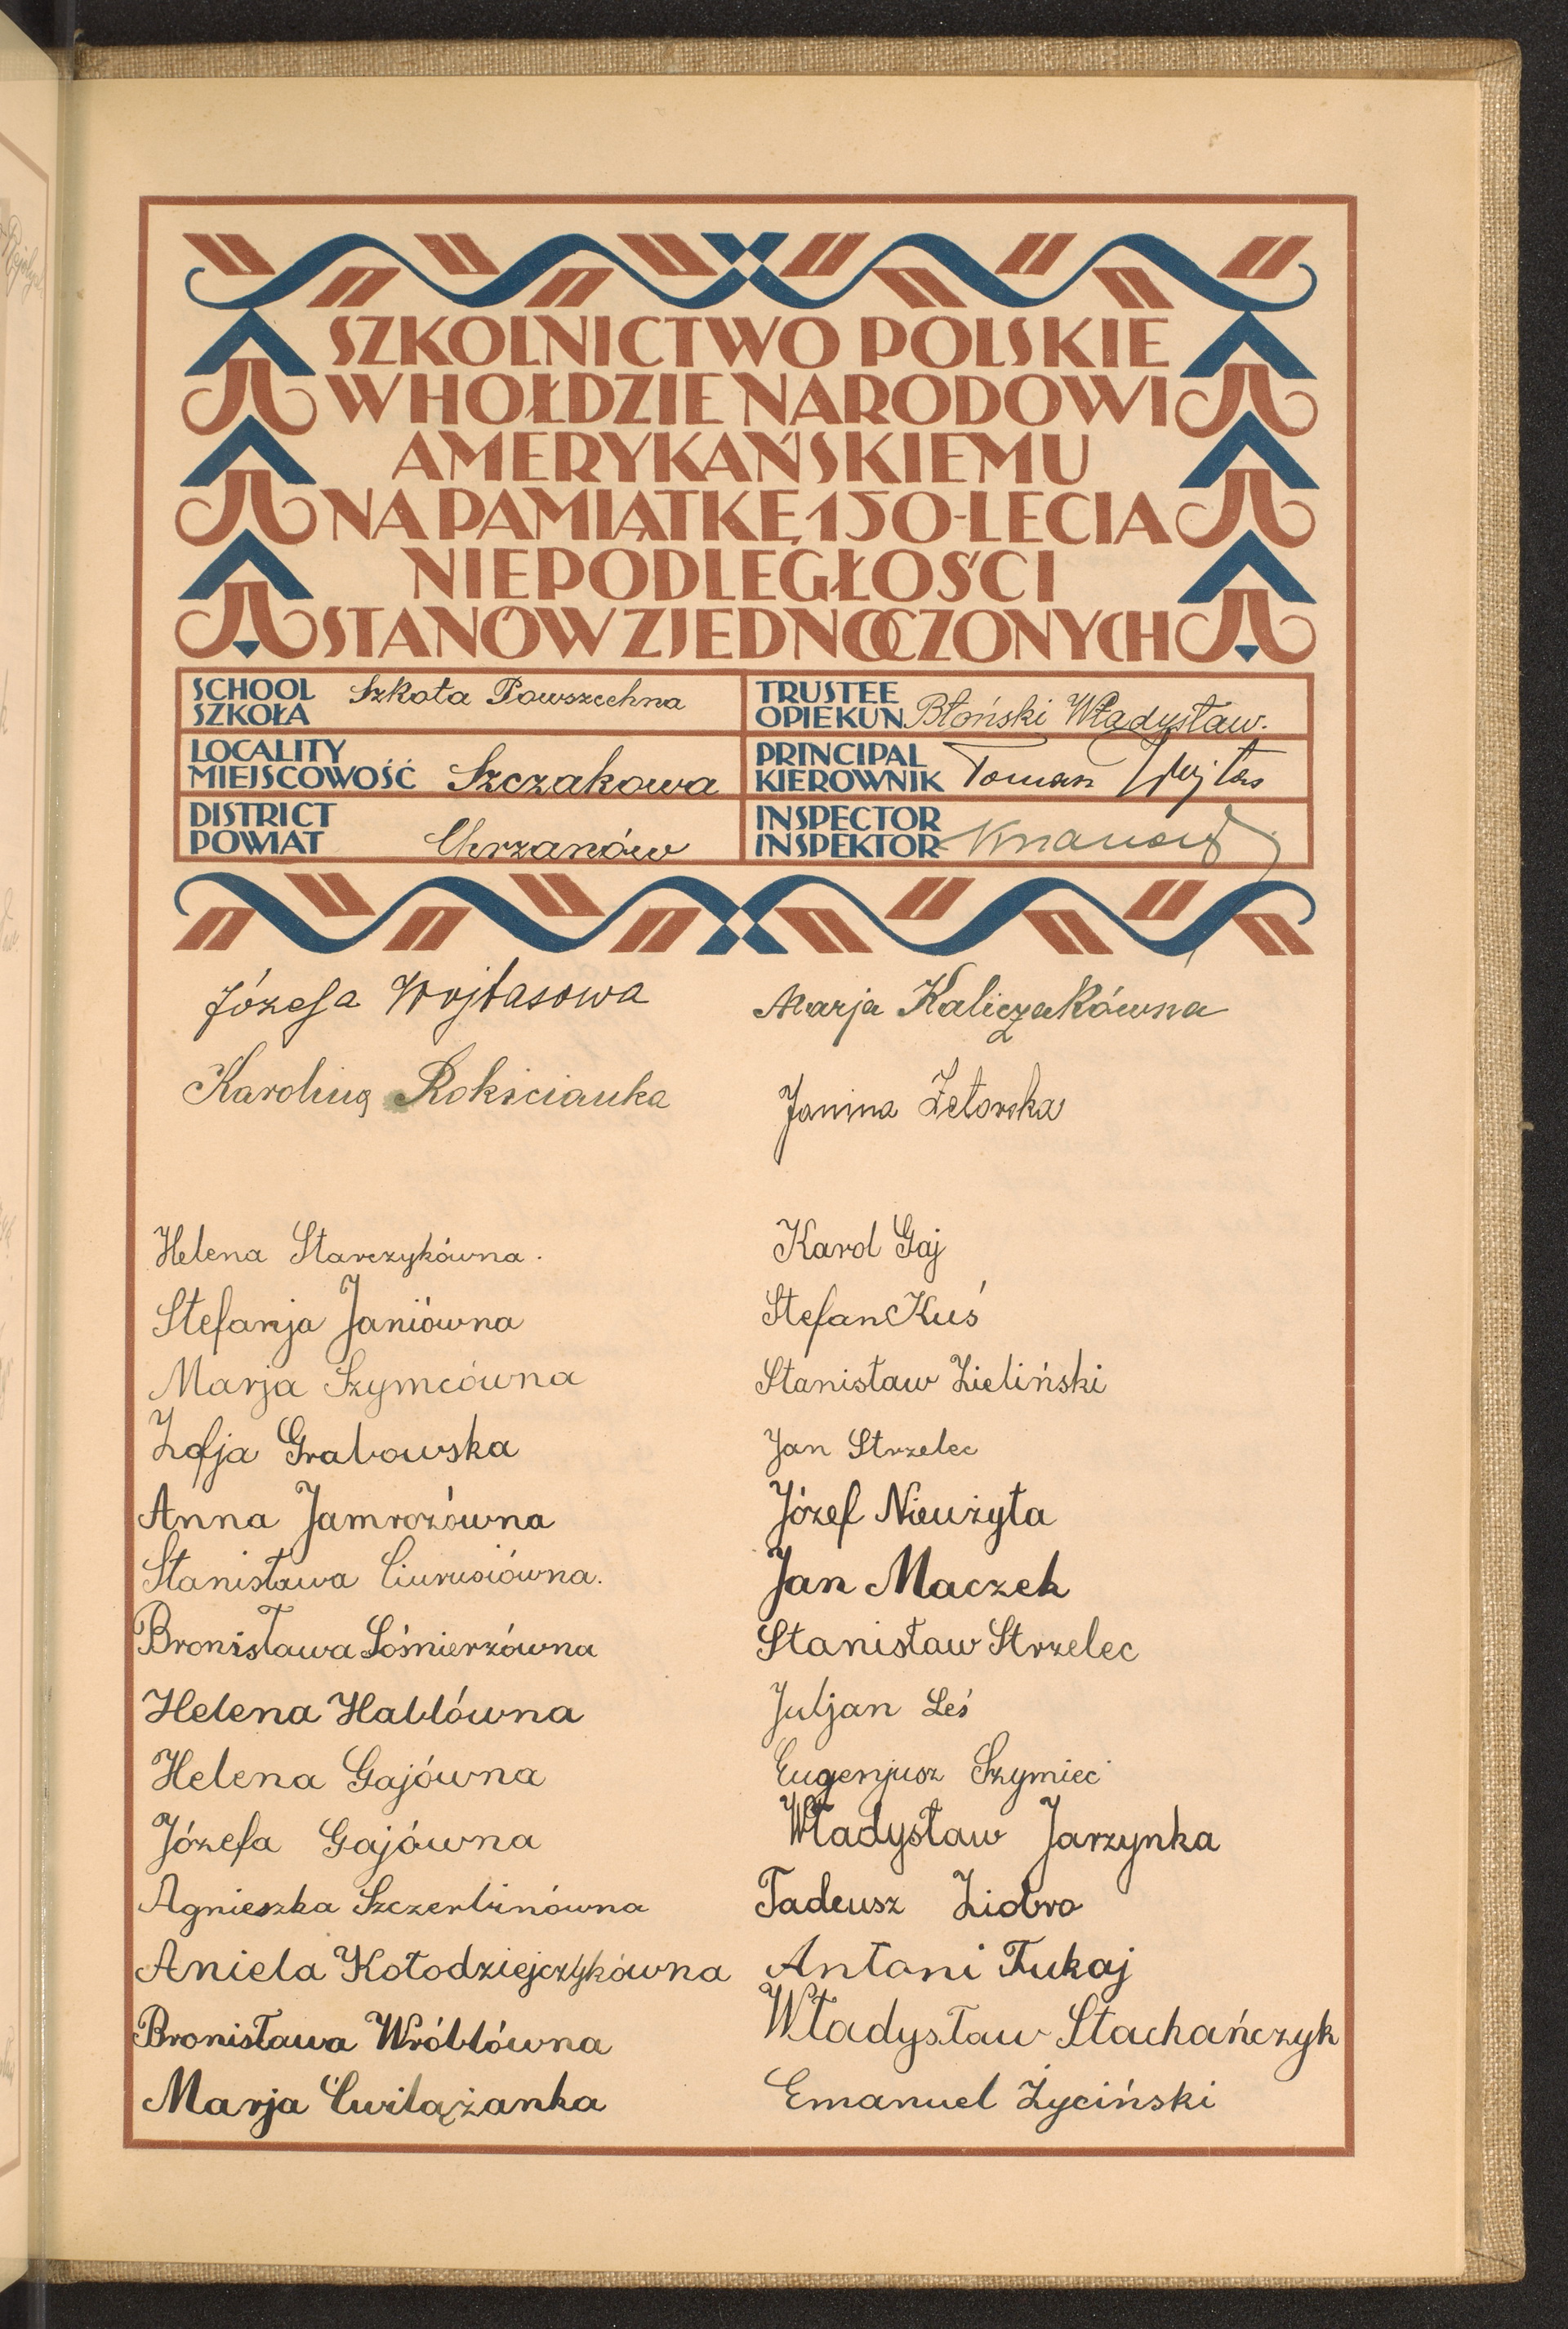 SZKOLNICTWO POLSKIE
W HOŁDZIE NARODOWI
AMERYKAŃSKIEMU
NA PAMIĄTKĘ 150-LECIA
NIEPODLEGŁOŚCI
STANÓW ZJEDNOCZONYCH
SCHOOL
SZKOŁA
Szkoła Powszechna
TRUSTEE
OPIEKUN
Błoński Władysław.
LOCALITY
MIEJSCOWOŚĆ
Szczakowa
PRINCIPAL
KIEROWNIK
Toman Wojtas
DISTRICT
POWIAT
Chrzanów
INSPECTOR
INSPEKTOR
Józefa Wojtasowa
Karolina Rokicianka
Marja Kaliczakówna
Janina
Helena Starczykówna.
Stefanja Janiówna
Marja Szymcówna
Zofja Grabowska
Anna Jamrozówna
Stanisława Ciurusiówna.
Bronisława Sośnierzówna
Helena Hablówna
Helena Gajówna
Józefa Gajówna
Agnieszka Szczerbinówna
Aniela Kołodziejczykówna
Bronisława Wróblówna
Marja Ćwilążanka
Karol Gaj
Stefan Kuś
Stanisław Zieliński
Jan Strzelec
Józef Nieużyta
Jan Maczek
Stanisław Strzelec
Juljan Leś
Eugenjusz Szymiec
Władysław Jarzynka
Tadeusz Ziobro
Antoni Tukaj
Władysław Stachańczyk
Emanuel Życiński